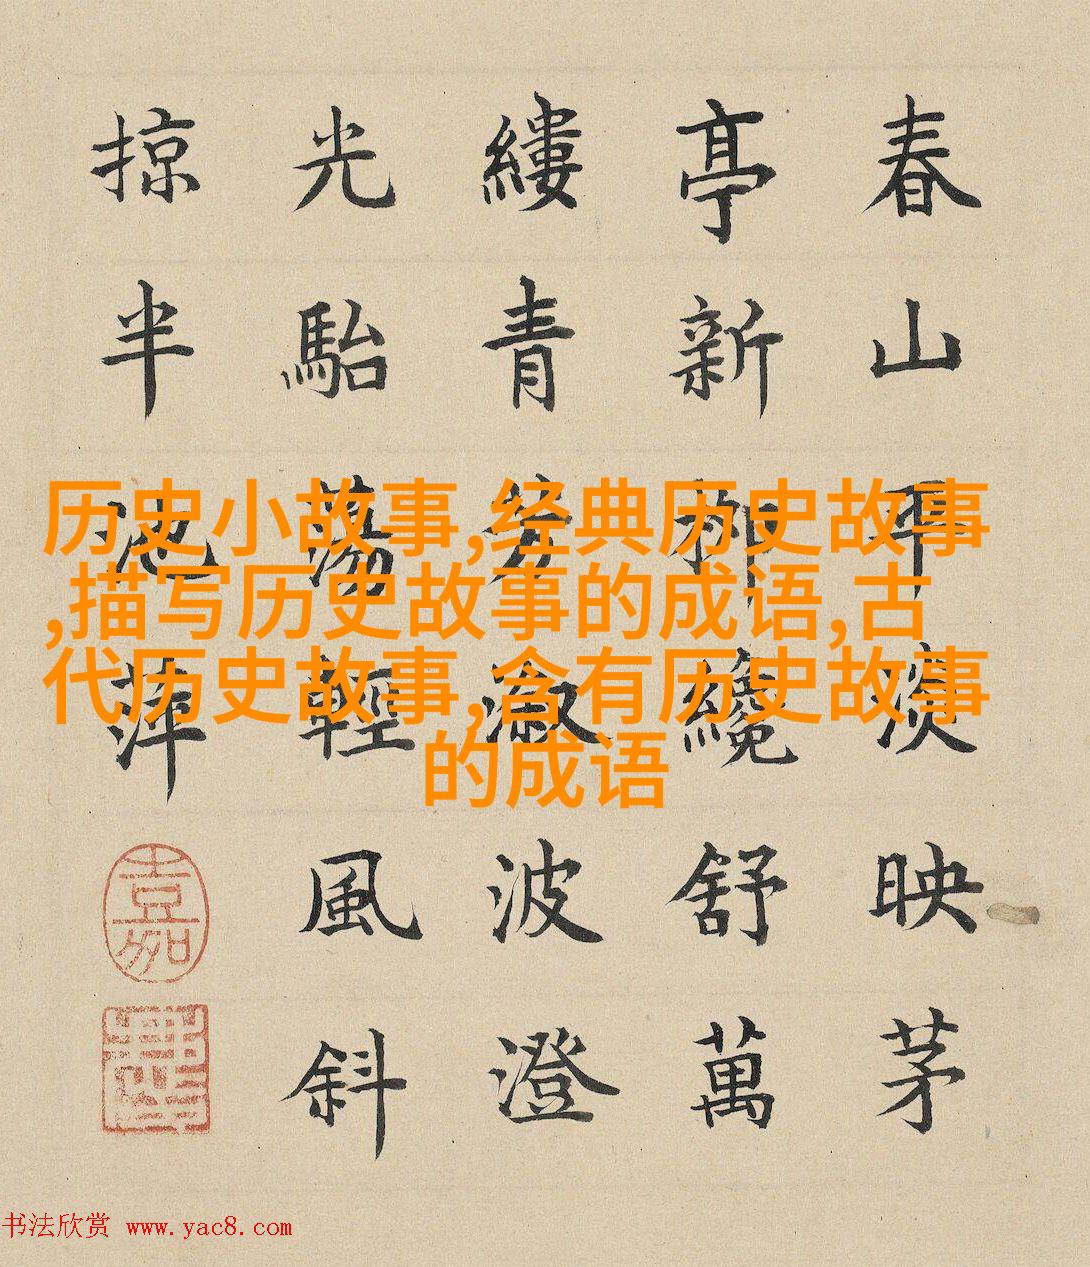 春山平淡映茅
亭新柳纔舒萬
縷青芳漵波澄
光駘蕩輕風斜
掠半池萍
嘉
历史小故事,经典历史故事
,描写历史故事的成语,古
代历史故事,含有历史故事
的成语
书法欣赏 www.yac8.com